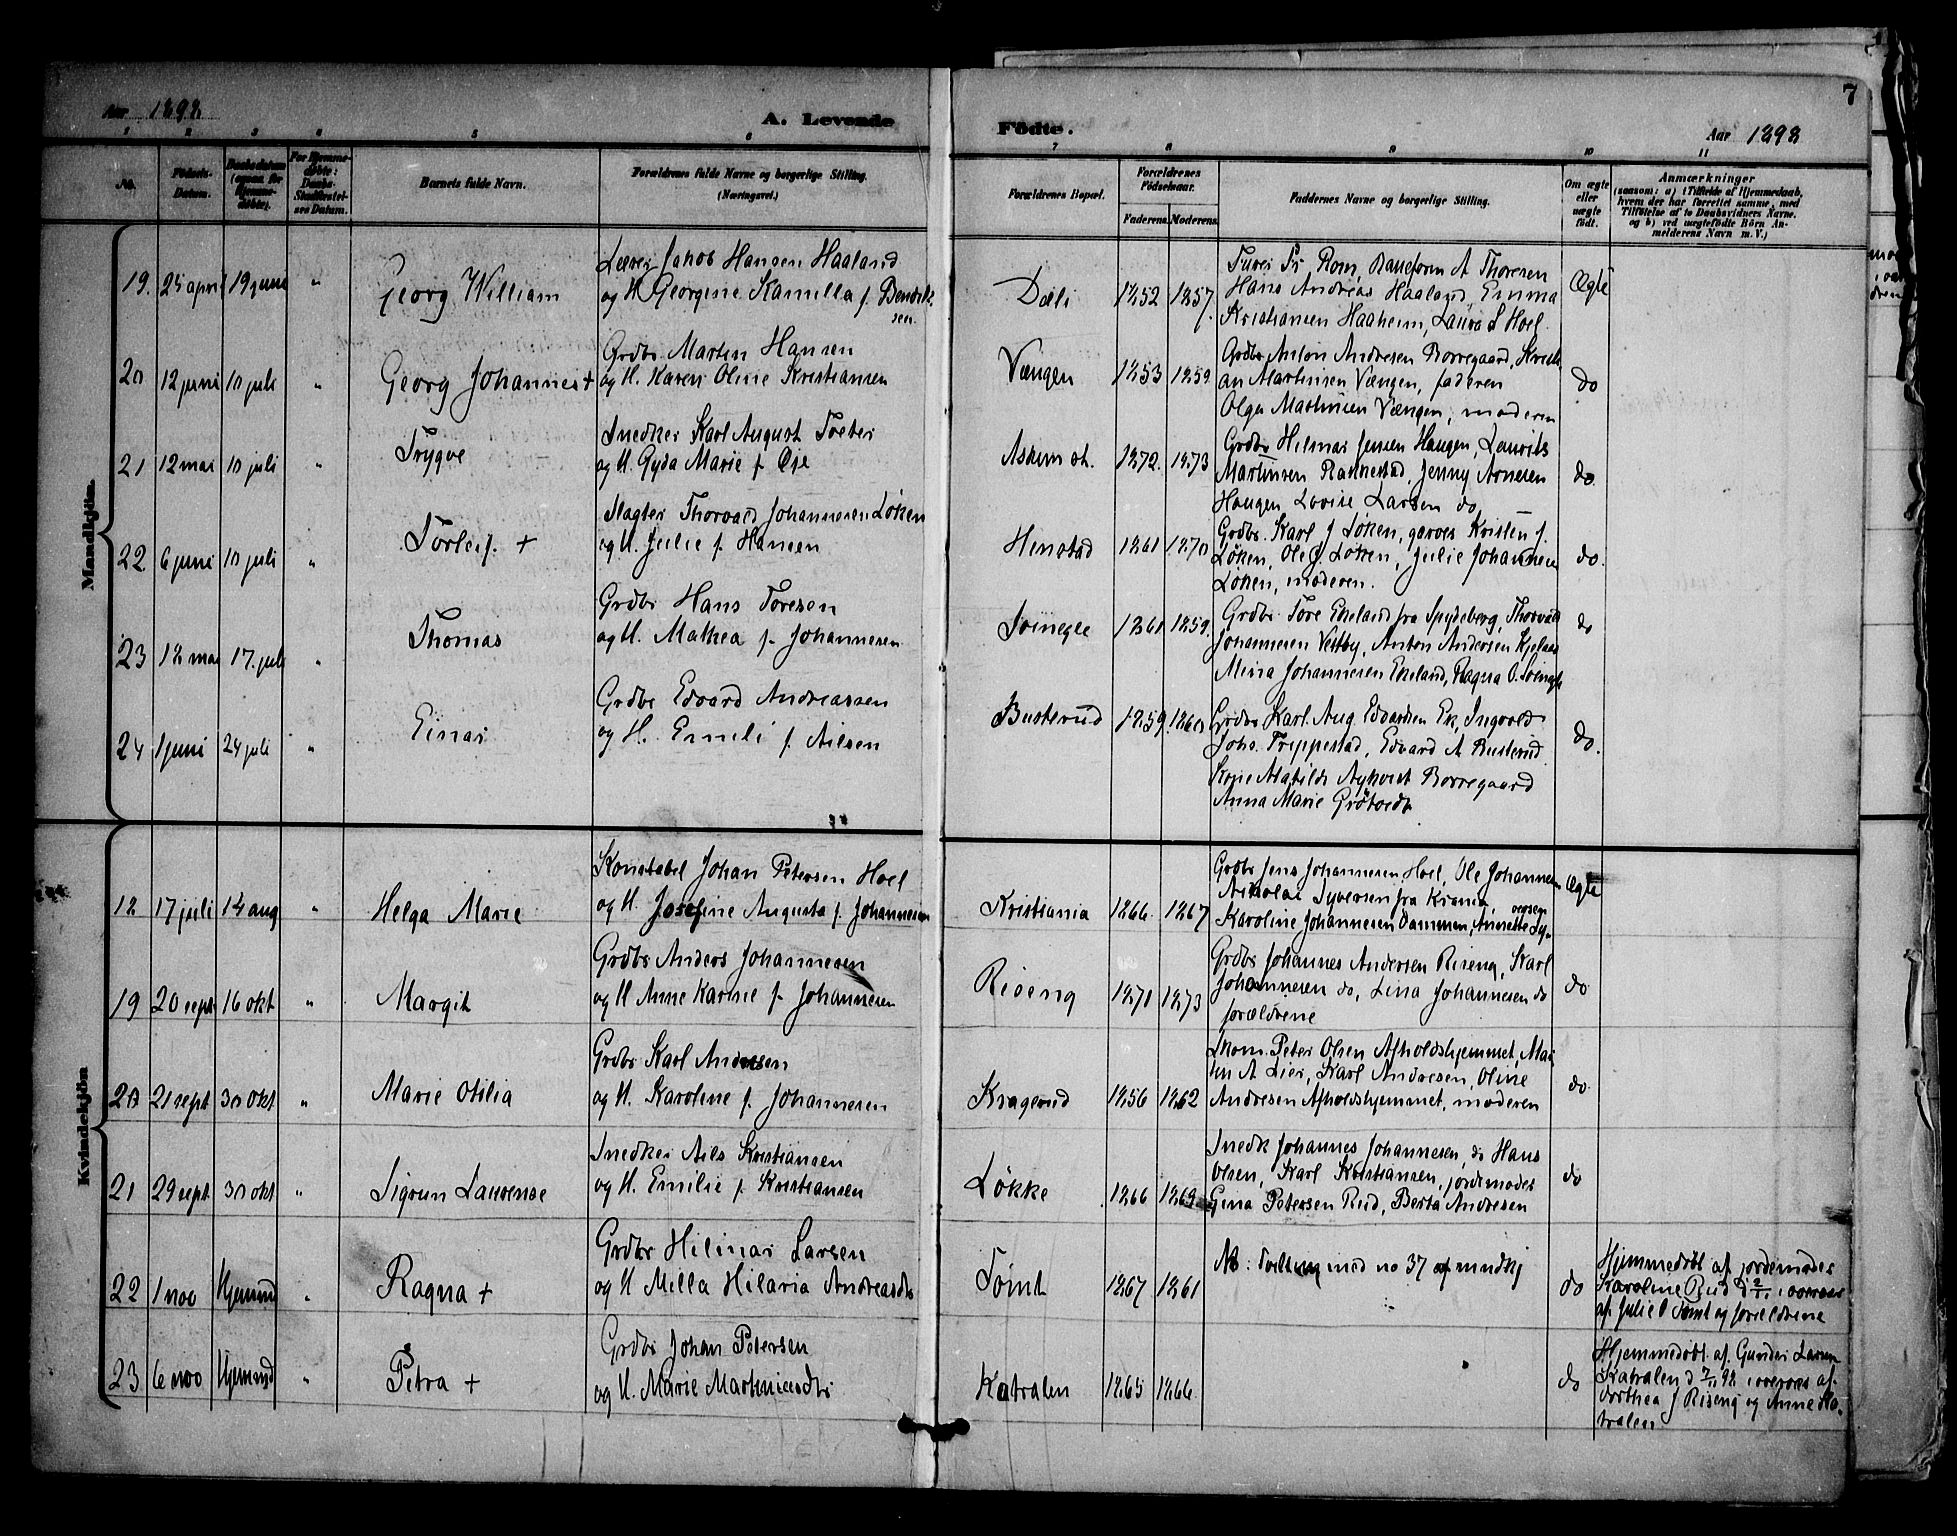 7
Aar 1898
A. Levende
Födte.
Aar 1898
1 2 3 4 5 6 7 8 9 10 11
No.
Födsels-
Datum.
Daabsdatum
(ogsaa for
Hjemme-
döbte).
For Hjemme-
döbte:
Daabs-
Stadfæstel-
ses Datum.
Barnets fulde Navn.
Forældrenes fulde Navne og borgerlige Stilling.
(Næringsvei.)
Forældrenes Bopæl.
Forældrenes
Födselsaar.
Faderens. Moderens.
Faddernes Navne og borgerlige Stilling.
Om ægte
eller
uægte
født.
Anmærkninger
(saasom: a) i Tilfælde af Hjemmedaab,
hvem der har forrettet samme, med
Tilföielse af to Daabsvidners Navne.
og b) ved uægtefödte Börn An-
melderens Navn m. V.)
Mandkjön.
19. 25 april 19 juni " Georg William
Lærer Jakob Hansen Haaland
og H. Georgine Kamilla f. Bendik
sen.
Dæli 1852 1857.
Rom, A Thoresen
Hans Andreas Haaland, Emma
Kristiansen Haaheim, Laura S Hoel.
Ægte
20 12 juni 10 juli " Georg Johannes +
Grdbr Martin Hansen
og H. Karen Oline Kristiansen
Vængen 1853 1859.
Grdbr Anton Andresen Borregaard, Kristi
an Martinsen Vængen, faderen
Olga Martinsen Vængen, moderen
do
21 12 mai 10 juli " Trygve
Snedker Karl August
og H. Gyda Marie f. Øie
Askim st. 1872. 1873
Grdbr Hilmar Jensen Haugen, Laurits
Martinsen Rakkestad, Jenny Arnesen
Haugen Lovise Larsen do
do.
22 6 juni 10 juli " Torleif. +
Slagter Thorvald Johannesen Løken
og H. Julie f. Hansen
Henstad 1861 1870
Grdbr. Karl J Løken, garver Kristen J.
Løken, Ole J. Løken, Julie Johannesen
Løken, moderen.
do.
23 18 mai 17. juli " Thomas
Grdbr Hans Toresen
og H. Mathea f. Johannesen
1861 1859.
Grdbr. Tore Ekeland fra Spydeberg, Thorvald
Johannesen Vestby, Anton Andersen
Mina Johannesen Ekeland, Ragna O.
do
24 1 juni 24 juli " Einar
Grdbr Edvard Andreassen
og H. Emili f. Nilsen
Busterud 1859. 1860
Grdbr Karl Aug. Edvardsen Ek, Ingvald
Johs. Trippestad, Edvard A Busterud
Matilde Borregaard
Anna Marie
do.
Kvindekjön
18 17 juli 14 aug " Helga Marie
Konstabel Johan Petersen Hoel
og H. Josefine Augusta f. Johannesen
Kristiania 1866. 1867
Grdbr Jens Johannesen Hoel, Ole Johannesen
Nikolai Syversen fra Krania,
versen
Karoline Johannesen Dammen, Annette Sy-
Ægte
19 20 sept 16 okt " Margit
Grdbr Anders Johannesen
og H Anne Karine f. Johannesen
Riseng 1871 1873
Grdbr Johannes Andersen Riseng, Karl
Johannesen do, Lina Johannesen do
forældrene
do
20 21 sept 30 okt " Marie Otilia
Grdbr Karl Andresen
og H. Karoline f. Johannesen
Kragerud 1856 1862
Skom. Peter Olsen Afholdshjemmet, Mar
tin A Lier, Karl Andresen, Oline
Andresen Afholdshjemmet, moderen
do
21 29 sept 30 okt " Sigrun Laurense
Snedker Nils Kristiansen
og H. Emilie f. Kristiansen
Løkke 1866 1869
Snedk Johannes Johannesen, do Hans
Olsen, Karl Kristiansen, jordemoder
Gina Petersen Rud, Berta Andresen
do
22 1 nov Hjemmd " Ragna +
Grdbr Hilmar Larsen
og H Milla Hilaria Andreasdtr
Tømt 1867 1861
NB: Tvilling med no 37 af mndkj
do
Hjemmedøbt af jordemoder
Karoline Rud d 2/11 i overvær
af Julie O Tømt og forældrene
23 6 nov Hjemmd " Petra +
Grdbr Johan Petersen
og H. Marie Martiniusdtr
Katralen 1865 1866.
do
Hjemmedøbt af Gunder Larsen
Katralen d 7/11 98 i overvær af
Dorthea J Riseng og Anne Ka-
tralen